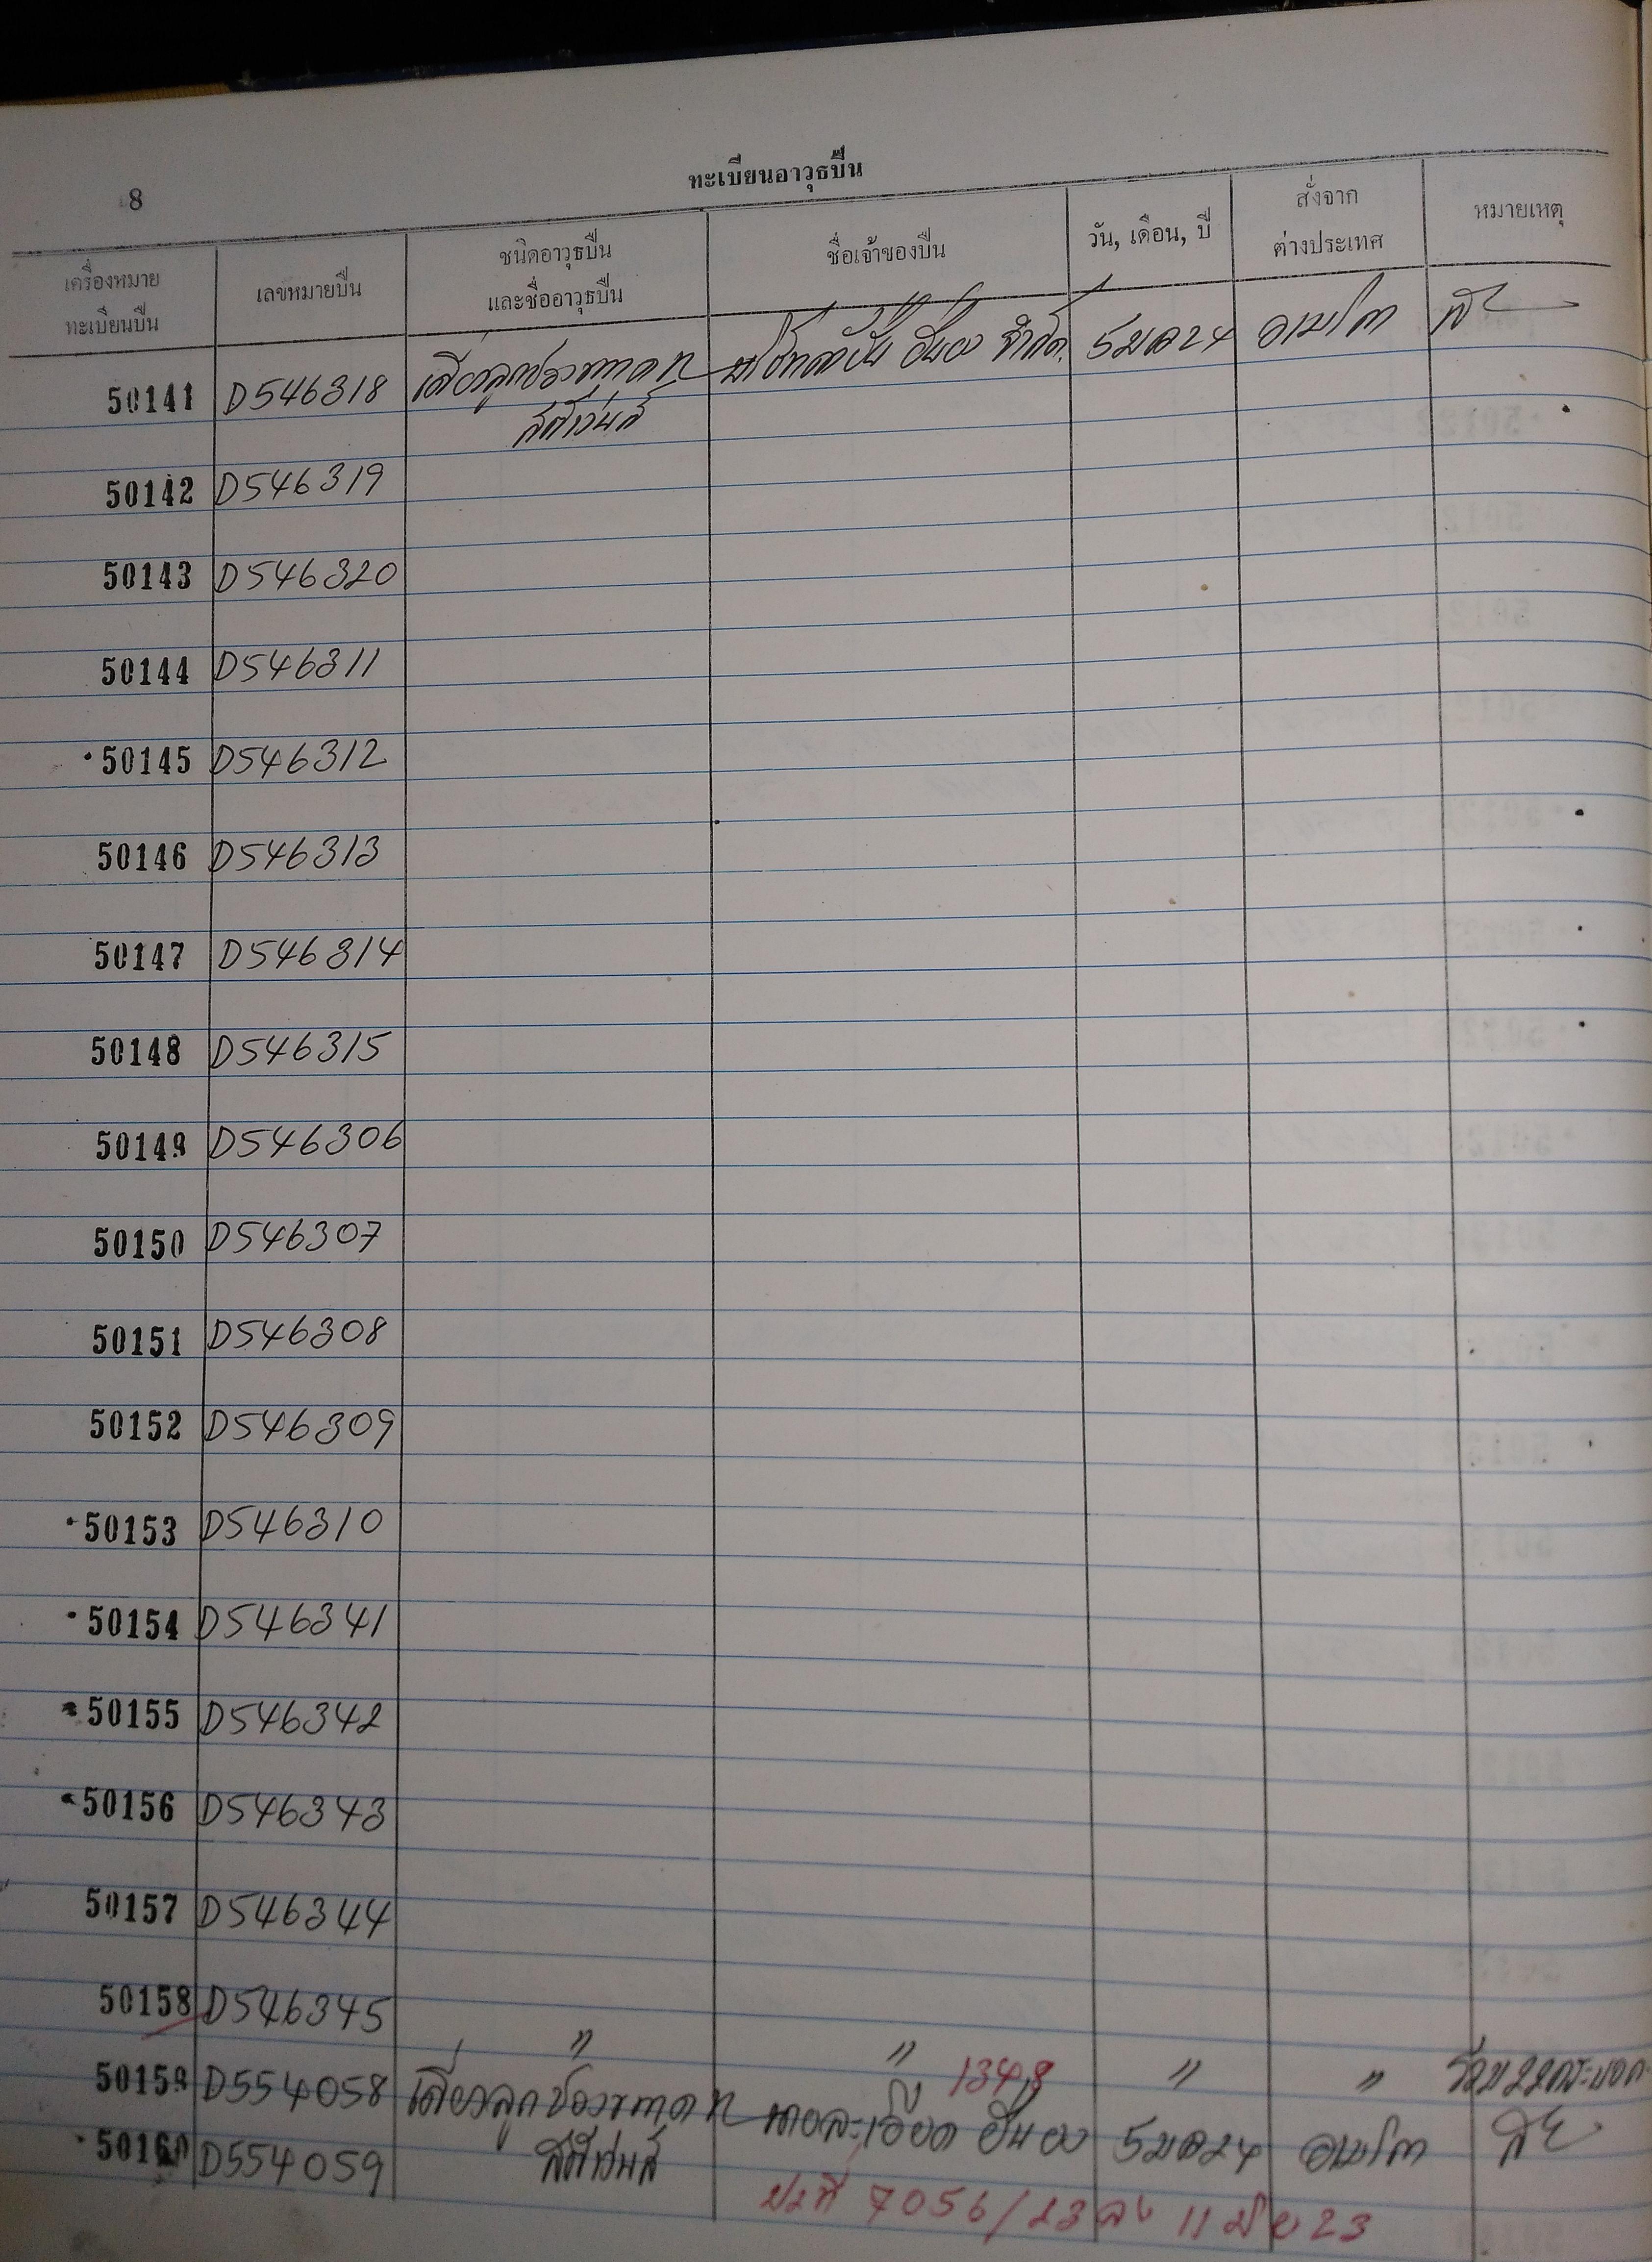 8
ทะเบียนอาวุธปืน
เครื่องหมาย
ทะเบียนปืน
เลขหมายปืน
ชนิดอาวุธปืน
และชื่ออาวุธปืน
ชื่อเจ้าของปืน
วัน, เดือน, ปี
สั่งจาก
ต่างประเทศ
หมายเหตุ
50141 D546318 เดี่ยวลูกซองขนาด จำกัด. 5 มค 24
สตีเว่นส์
50142 D546319
50143 D546320
50144 D546311
50145 D546312
50146 D546313
50147 D546314
50148 D546315
50149 D546306
50150 D546307
50151 D546308
50152 D546309
50153 D546310
50154 D546341
50155 D546342
50156 D546343
50157 D546344
50158 D546345
" " " "
1348
50159 D554058 เดี่ยวลูกซองขนาด 5 มค 24
50160 D554059 สตีเว่นส์
7056/23 ลง 11 มิย 23